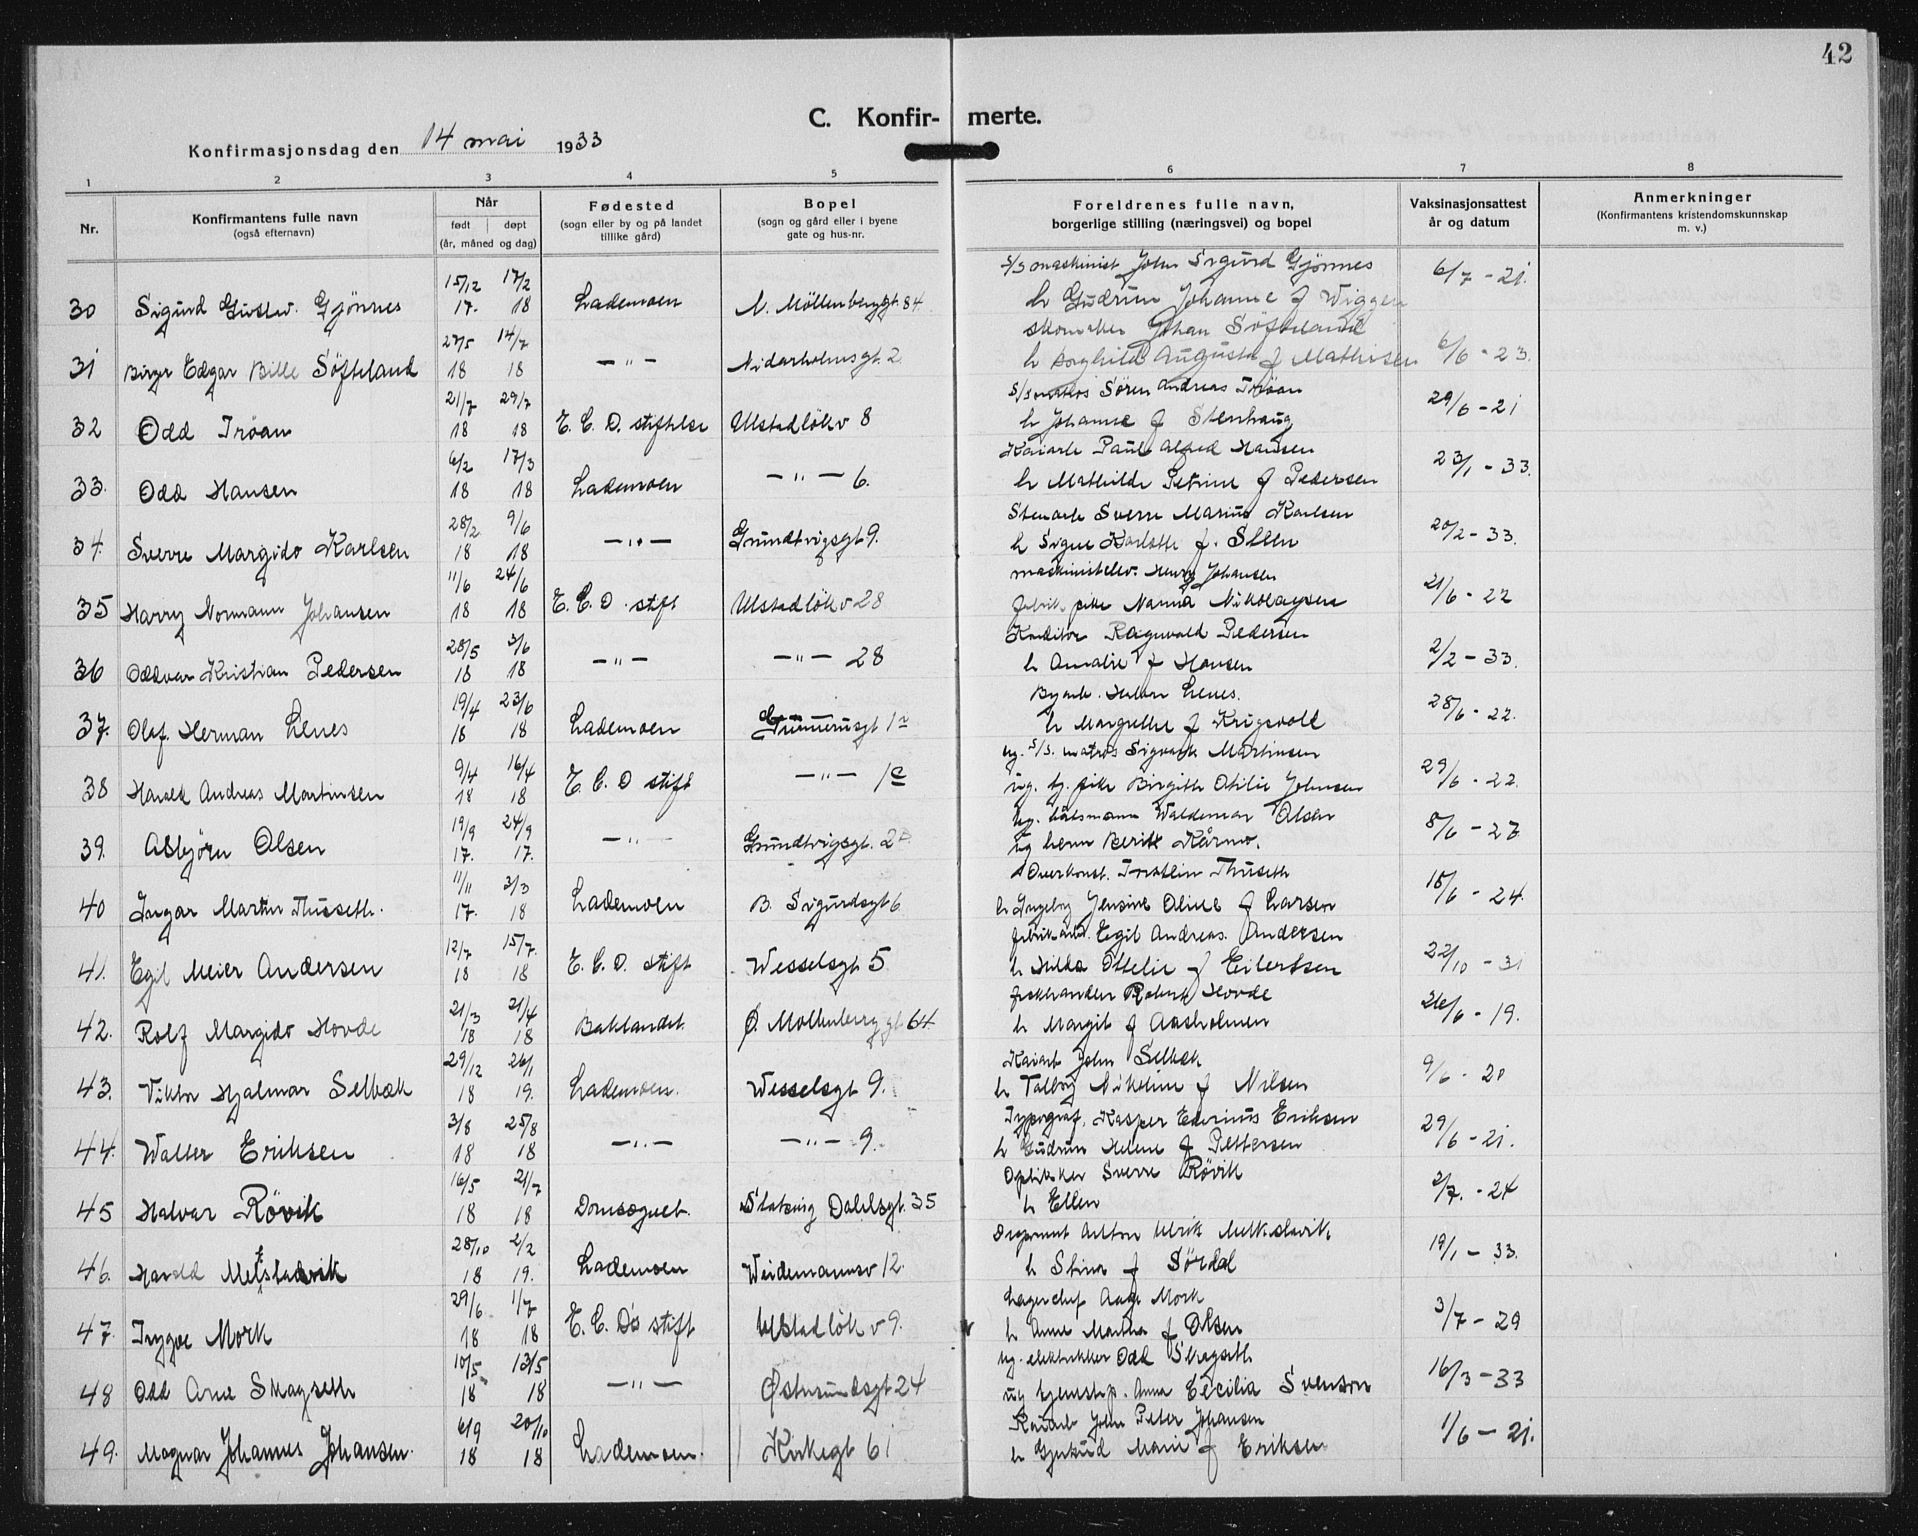 42
C. Konfir- merte.
Konfirmasjonsdag den 14 mai 1933
1 2 3 4 5 6 7 8
Nr.
Konfirmantens fulle navn
(også efternavn)
Når
født døpt
(år, måned og dag)
Fødested
(sogn eller by og på landet
tillike gård)
Bopel
(sogn og gård eller i byene
gate og hus-nr.
Foreldrenes fulle navn,
borgerlige stilling (næringsvei) og bopel
Vaksinasjonsattest
år og datum
Anmerkninger
(Konfirmantens kristendomskunnskap
m. v.)
15/12 17/2 s/s maskinist John Sigurd Gjönnes 6/7 - 21.
30 Sigurd Gustav. Gjönnes 17. 18 Lademoen N. Möllenberggt. 84 h Gudrun Johanne f Wiggen
27/5 14/7 skomaker Johan Söfteland
31 Birger Edgar Bille Söfteland 18 18 — " — Nidarholmsgt. 2 h Borghild Augusta f Mathisen 6/6 - 23.
21/7 29/7 s/s matros Sören Andreas Tröan 29/6 - 21
32 Odd Tröan 18 18 E. C. D. stiftelse Ulstadlökv 8 h Johanne f Stenhaug
6/2 17/3 Kaiarb Paul Alfred Hansen 23/1 - 33.
33. Odd Hansen 18 18 Lademoen — " — 6. h Mathilde Petrine f Pedersen
28/2 9/6 Stenarb Sverre Marius Karlsen 20/2 - 33.
34. Sverre Margido Karlsen 18 18 — " — Grundtvigsgt 9. h Signe Karlotte f. Steen
11/6 24/6 maskinistelev. Henry Johansen 21/6 - 22
35 Harry Normann Johansen 18 18 E. C. D. stift Ulstadlökv 28 fabrik pike Nanna Nikolaysen
28/5 3/6 Konditor Ragnvald Pedersen 2/2 - 33.
36 Oddvar Kristian Pedersen 18 18 — " — — " — 28 h Amalie f Hansen
19/4 23/6 Byarb. Halvor Lenes. 28/6 - 22.
37. Olaf. Herman Lenes 18 18 Lademoen Gunnerusgt 1 h Margrethe f Krigsvoll
9/4 16/4 ug. s/s. matros Sigvark Martinsen 29/6 - 22.
38 Harald Andreas Martinsen 18 18 E. C. D stift — " — 1c ug. tj. pike Birgith Otilie Johnsen
19/9 24/9 ug. båtsmann Waldemar Olsen 8/6 - 27
39. Asbjörn Olsen 17. 17. — " — Grundtvigsgt. 2 ug henn Berit Kårmo.
11/11 3/3 Overkonst. Thuseth 18/6 - 24.
40 Ingar Martin Thusseth. 17. 18 Lademoen B. Sigurdsgt 6 h Ingeborg Jensine Oline f Larsen
12/7 15/7. fabrikarb. Egil Andreas. Andersen 22/10 - 31
41. Egil Meier Andersen 18 18 E. C. D. stift Wesselsgt 5 h Hilda Ottelie f Eilertsen
21/3 21/4 fiskhandler Robert Hovde 26/6 - 19.
42. Rolf Margido Hovde 18 18 Baklandet Ø. Mollenberggt 64 h Margit f Aasholmen
29/12 26/1 Kaiarb John Selbæk 9/6 - 20
43. Viktor Hjalmar Selbæk 18 19. Lademoen. Wesselsgt 9. h Talborg Nikoline f Nilsen
3/8 25/8 Typograf. Kasper Edvinus Eriksen 29/6 - 21.
44. Walter Eriksen 18 18 — " — — " — 9. h Gudrun Helene f Pettersen
16/5 21/7 Optikker Sverre Rövik 2/7. - 24
45 Halvar Rövik 18 18 Domsognet. Slotsvig Dahlsgt. 35 h Ellen
28/10 2/2 Anton Ulrik Melkstavik 19/1 - 33.
46. Harald Melkstavik 18 19. Lademoen Weidemannsv 12. h Stina f Sördal
29/6 1/7 Lagerchef Aage Mork 3/7 - 29
47. Trygve Mork 18 18 E. C. Ds stift Ulstadlökv 9. h Anne Martha f Olsen
10/5 13/5 ug. elektrikker Odd Skagseth 16/3 - 33
48 Odd Arne Skagseth 18 18 — " — Østersundsgt 24 ug hjemstop. Anna Cecilia Svenson
6/9 20/10 Kaiarb John Peter Johansen 1/6 - 21.
49. Magnar Johannes Johansen. 18 18 Lademoen. Kirkegt 61 h Gjertrud Marie f Eriksen